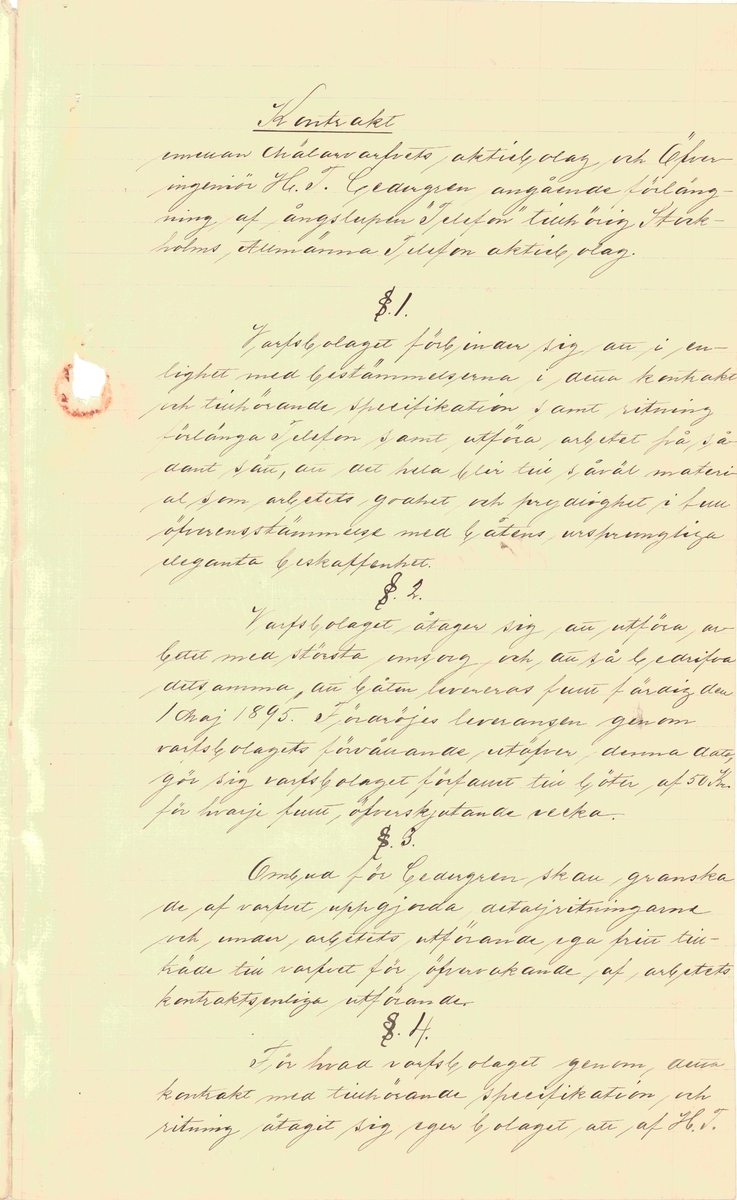 Kontrakt
emellan Mälarvarfvets aktiebolag och Öfver-
ingeniör H. T. Cedergren angående förläng-
ning af ångslupen "Telefon" tillhörig Stock-
holms Allmänna Telefon aktiebolag.
§. 1.
Varfsbolaget förbinder sig att i en-
lighet med bestämmelserna i detta kontrakt
och tillhörande specifikation samt ritning
förlänga Telefon samt utföra arbetet på så-
dant sätt, att det hela blir till såväl materi-
al som arbetets godhet och prydlighet i full
öfverensstämmelse med båtens ursprungliga
eleganta beskaffenhet.
§. 2.
Varfsbolaget åtager sig att utföra ar-
betet med största omsorg och att så bedrifva
detsamma, att båten levereras fullt färdig den
1 Maj 1895. Fördröjes leveransen genom
varfsbolagets förvållande utöfver denna dato,
gör sig varfsbolaget förfallet till böter af 50 Kr.
för hvarje fullt öfverskjutande vecka.
§. 3.
Ombud för Cedergren skall granska
de af varfvet uppgjorda detaljritningarne
och under arbetets utförande ega fritt till-
träde till varfvet för öfvervakande af arbetets
kontraktsenliga utförande.
§. 4.
För hvad varfsbolaget genom detta
kontrakt med tillhörande specifikation och
ritning åtagit sig eger bolaget att af H. T.